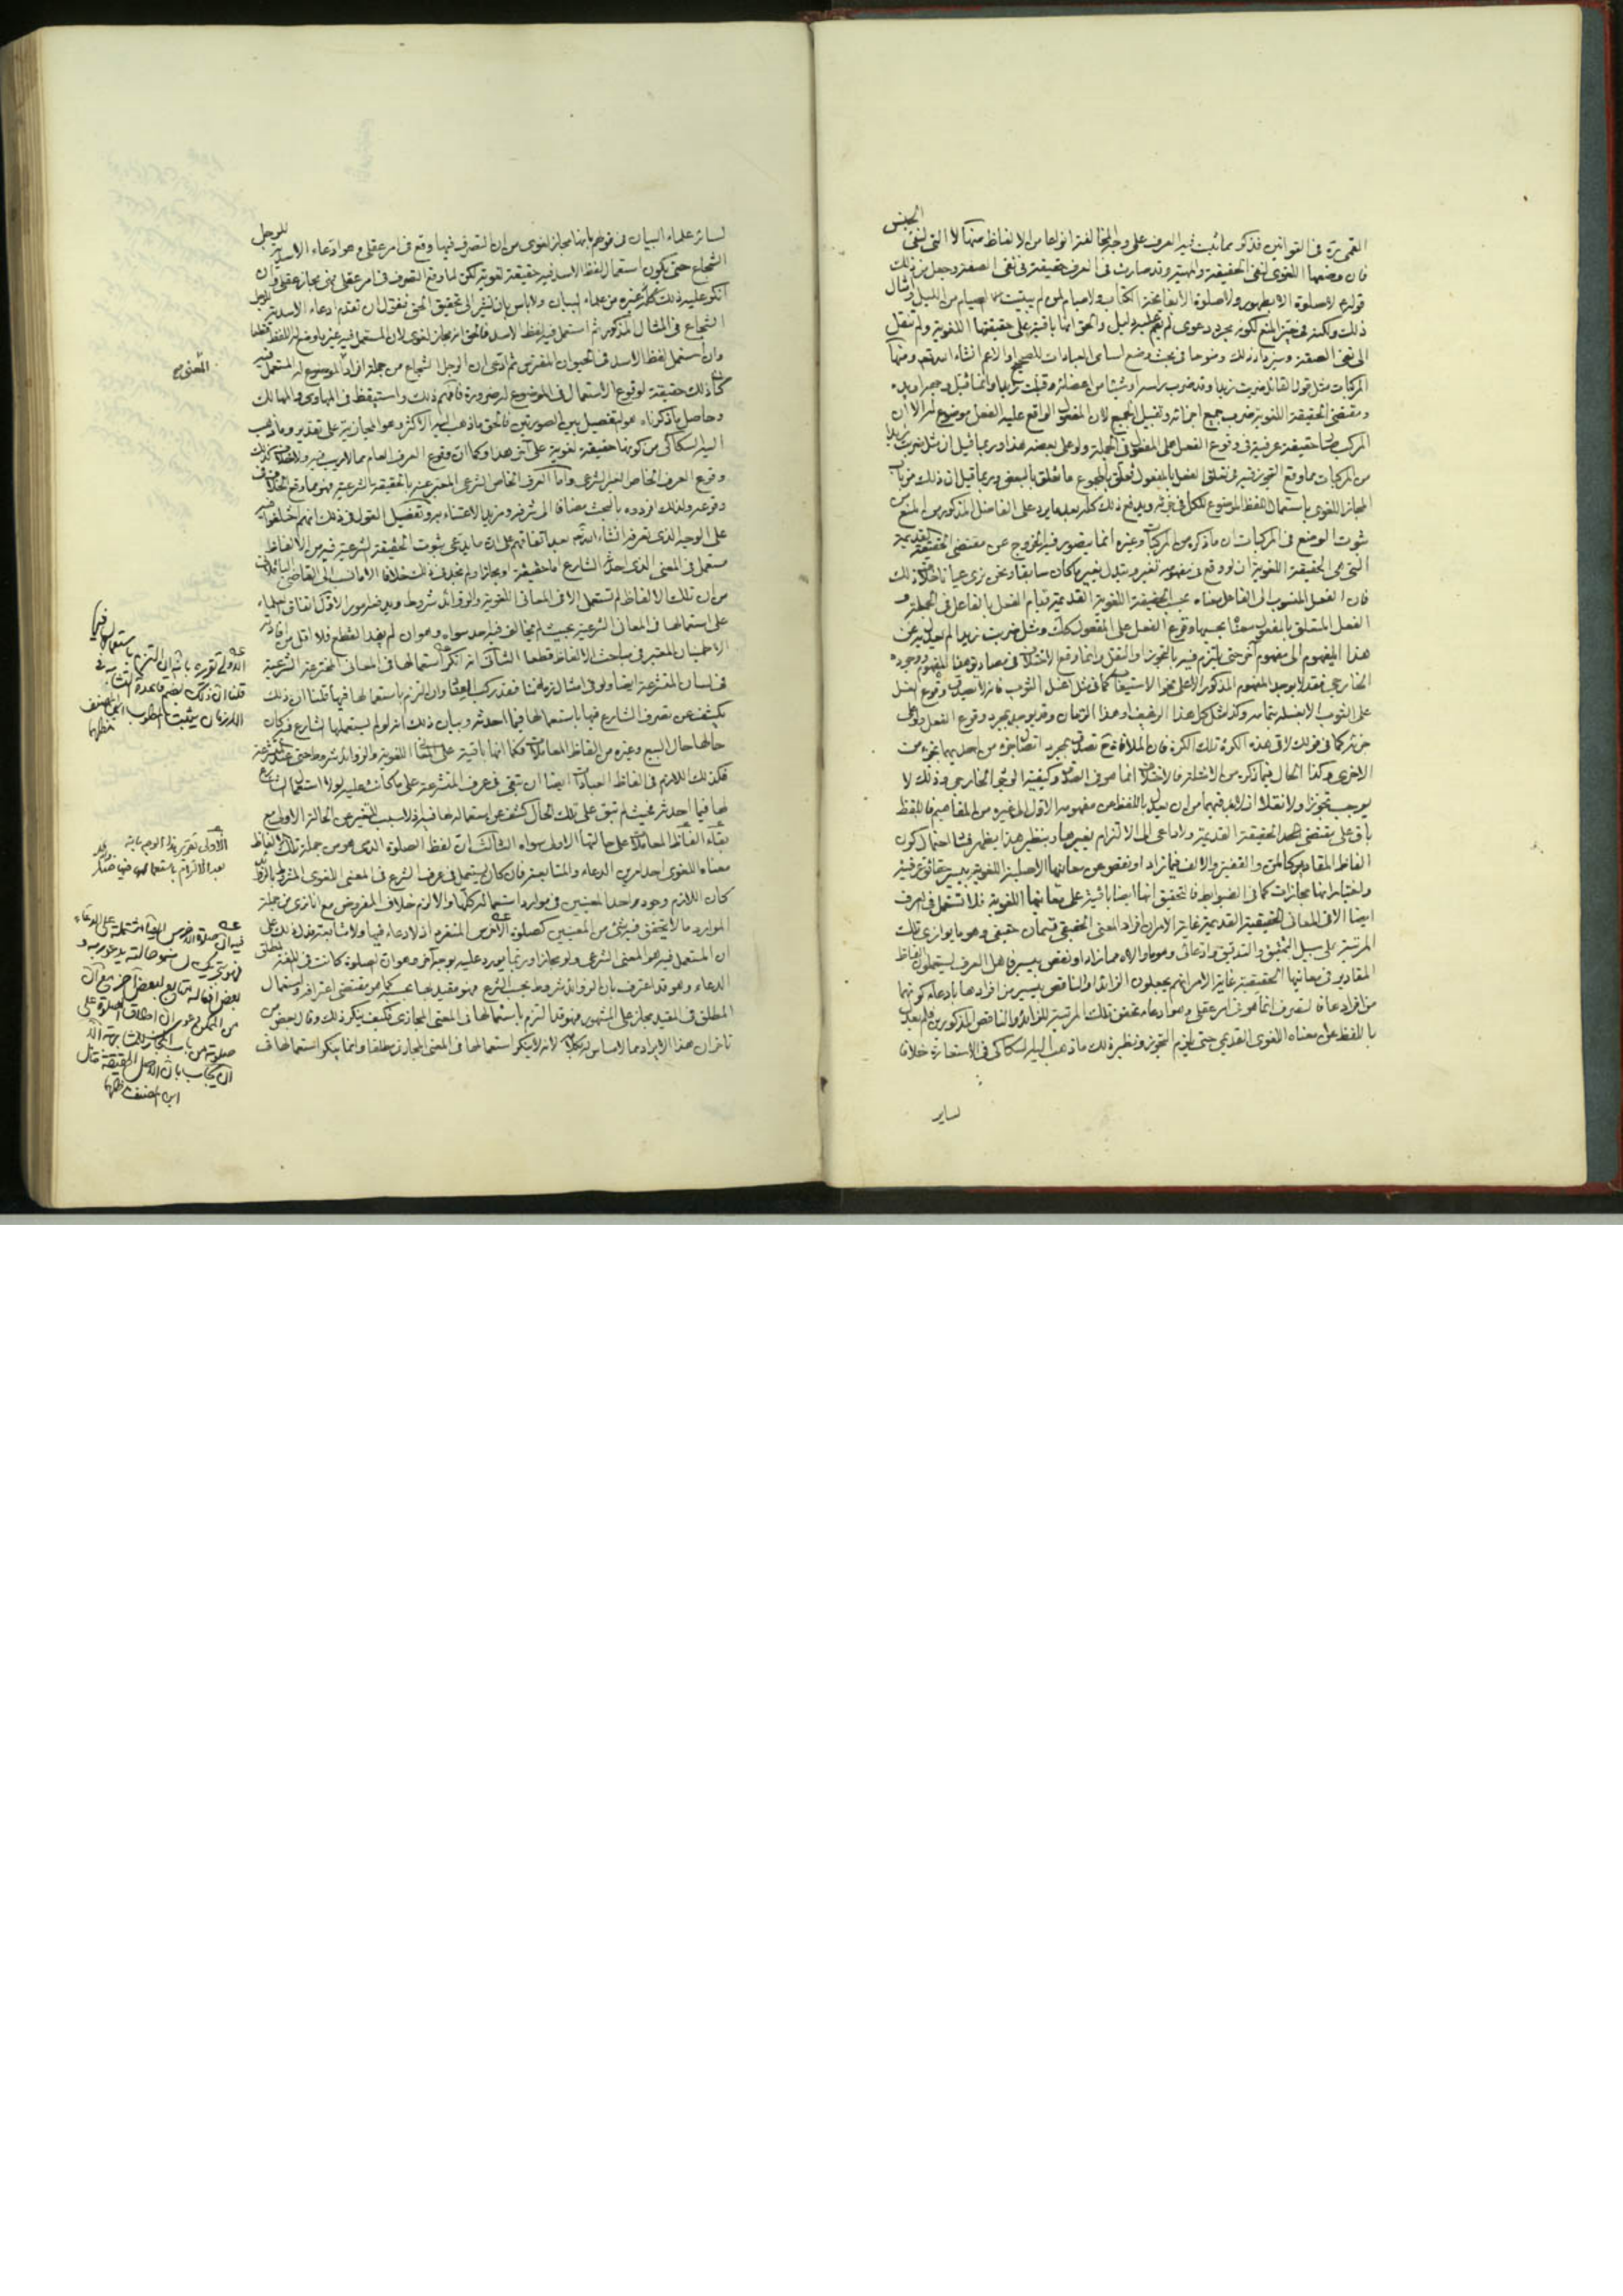 القمى ره فى القوانين فذكر مما ثبت فيه العرف على وجه المخالفة انواعا من الالفاظ منها لا التى لنفى الجنس
فان وضعها اللغوى لنفى الحقيقة والمهية وقد صارت فى العرف حقيقة فى نفى الصفة وجعل من ذلك
قولهم لا صلوة الا بطهور ولا صلوة الا بفاتحة الكتاب ولا صيام لمن لم يبيت الصيام من الليل وامثال
ذلك ولكنه فى حيز المنع لكونه مجرد دعوى لم يقم عليه دليل والحق انها باقية على حقيقتها اللغوية ولم تنقل
الى نفى الصفة وسيزداد ذلك وضوحا فى بحث وضع اسامى العبادات للصحيح او الاعم انشاء الله تعم ومنها
المركبات مثل قول القائل ضربت زيدا وقد ضرب راسه او شيئا من اعضائه وقبلت زيدا وانما قبل وجهه او يده
ومقتضى الحقيقة اللغوية ضرب جميع اجزائه وتقبيل الجميع لان المفعول الواقع عليه الفعل موضوع لها الا ان
المركب حقيقة عرفية فى وقوع الفعل على المفعول فى الجملة ولو على بعضه هذا وربما قيل ان مثل ضربت زيدا
من المركبات مما وقع التجوز فيه فى تعلق الفعل بالمفعول فعلق بالمجموع ما تعلق بالبعض وربما قيل ان ذلك من باب
المجاز اللغوى باستعمال اللفظ الموضوع للكل فى جزئه ويدفع ذلك كله بعد ما يرد على الفاضل المذكور من المنع من
ثبوت الوضع فى المركبات ان ما ذكره من المركبات وغيره انما يتصور فيه الخروج عن مقتضى الحقيقة القديمة
التى هى الحقيقة اللغوية ان لو وقع فى مفهومه تغير وتبدل بغير ما كان سابقا ونحن نرى عيانا خلاف ذلك
فان الفعل المنسوب الى الفاعل معناه بحسب الحقيقة اللغوية القديمة قيام الفعل بالفاعل فى الجملة و
الفعل المتعلق بالمفعول معناه بحسبها وقوع الفعل على المفعول كك ومثل ضربت زيدا لم يعدل به عن
هذا المفهوم الى مفهوم آخر حتى يلتزم فيه بالتجوز او النقل وانما وقع الاختلاف فى مصاديق هذا المفهوم ووجوده
الخارجى فقد لا يوجد المفهوم المذكور الا على نحو الاستيعاب كما فى مثل اغسل الثوب فانه لا يصدق وقوع الغسل
على الثوب الا بغسله بتمامه وكذا مثل كل هذا الرغيف او هذا الرمان وقد يوجد بمجرد وقوع الفعل ولو على
جزئه كما فى قولك لاقى هذه الكرة تلك الكرة فان الملاقاة تصدق بمجرد اتصال جزء من احديهما بجزء من
الاخرى وكذا الحال فيما ذكره من الامثلة فالاختلاف انما هو فى المصداق وكيفية الوجود الخارجى وذلك لا
يوجب تجوزا ولا نقلا اذ لا بد فيهما من ان يعدل باللفظ عن مفهومه الاول الى غيره من المفاهيم فاللفظ
باق على مقتضى الحقيقة القديمة ولا داعى الى الالتزام بغيرها وبنظير هذا يظهر فساد احتمال كون
الفاظ المقادير كالمن والقفيز والالف فيما زاد او نقص عن معانيها الاصلية اللغوية بيسير حقائق عرفية
واختيار انها مجازات كما فى الضوابط فالتحقيق انها ايضا باقية على معانيها اللغوية فلا تستعمل فى العرف
ايضا الا فى المعانى الحقيقية القديمة غاية الامر ان افراد المعنى الحقيقى قسمان حقيقى وهو ما يوازى تلك
المرتبة على سبيل التحقيق والتدقيق وادعائى وهو ما والاه مما زاد او نقص بيسير فاهل العرف يستعملون الفاظ
المقادير فى معانيها الحقيقية غاية الامر انهم يجعلون الزائد او الناقص بيسير من افرادها بادعاء كونهما
من افرادها فالتصرف انما هو فى امر عقلى وهو ادعاء تحقق تلك المرتبة للزائد والناقص المذكورين فلم يعدل
باللفظ عن معناه اللغوى القديم حتى يلزم التجوز ونظير ذلك ما ذهب اليه السكاكى فى الاستعارة خلافا
لساير
لسائر علماء البيان فى قولهم بانها مجاز لغوى من ان التصرف فيها وقع فى امر عقلى وهو ادعاء الاسدية للرجل
الشجاع حتى يكون استعمال لفظ الاسد فيه حقيقة لغوية لكن لما وقع التصرف فى امر عقلى فهى مجاز عقلى وان
انكر عليه ذلك غيره من علماء البيان ولا باس بان نشير الى تحقيق الحق فنقول ان تقدم ادعاء الاسدية للرجل
الشجاع فى المثال المذكور ثم استعمل فيه لفظ الاسد فالحق انه مجاز لغوى لان المستعمل فيه غير ما وضع له اللفظ قطعا
وان استعمل لفظ الاسد فى الحيوان المفترس ثم ادعى ان الرجل الشجاع من جملة افراد الموضوع له المستعمل فيه
كان ذلك حقيقة لوقوع الاستعمال فى الموضوع له ضرورة فافهم ذلك واستيقظ فى المهاوى والمهالك
وحاصل ما ذكرناه هو التفصيل بين الصورتين فالحق ما ذهب اليه الاكثر وهو المجازية على تقدير وما ذهب
اليه السكاكى من كونها حقيقة لغوية على آخر هذا وكما ان وقوع العرف العام مما لا ريب فيه ولا خلاف كذلك
وقوع العرف الخاص الغير الشرعى واما العرف الخاص الشرعى المعبر عنه بالحقيقة الشرعية فهو مما وقع الخلاف فى
وقوعه ولذلك افردوه بالبحث مضافا الى شرفه ومزيد الاعتناء به وتفصيل القول فى ذلك انهم اختلفوا فيه
على الوجه الذى تعرفه انشاء الله تعم بعد اتفاقهم على ان ما يدعى ثبوت الحقيقة الشرعية فيه من الالفاظ
مستعمل فى المعنى الذى احدثه الشارع اما حقيقة او مجازا ولم نجد فى ذلك خلافا الا ما نسب الى القاضى الباقلانى
من ان تلك الالفاظ لم تستعمل الا فى المعانى اللغوية والزوائد شروط ويدفعه امور الاول اتفاق العلماء
على استعمالها فى المعانى الشرعية بحيث لم يخالف فيه احد سواه وهو ان لم يفد القطع فلا اقل من افادته
الاطمينان المعتبر فى مباحث الالفاظ قطعا الثانى انه ان انكر استعمالها فى المعانى المخترعة الشرعية
فى لسان المتشرعة ايضا ولو فى امثال زماننا فقد ركب العثار وان التزم باستعمالها فيها قلنا ان ذلك
يكشف عن تصرف الشارع فيها باستعمالها فيما احدثه وبيان ذلك انه لو لم يستعملها الشارع فيه كان
حالها حال البيع وغيره من الفاظ المعاملات فكما انها باقية على المعانى اللغوية والزوائد شروط حتى عند المتشرعة
فكذلك اللازم فى الفاظ العبادات ايضا ان تبقى فى عرف المتشرعة على ما كانت عليه لولا استعمال الشارع
لها فيما احدثه فحيث لم تبق على تلك الحال كشف عن استعماله لها فيه اذ لا سبب للتغير عن الحالة الاولى مع
بقاء الفاظ المعاملات على حالتها الاولى سواه الثالث ان لفظ الصلوة الذى هو من جملة تلك الالفاظ
معناه اللغوى احد امرين الدعاء والمتابعة فان كان يستعمل فى عرف الشرع فى المعنى اللغوى المشروط بالزوائد
كان اللازم وجود واحد المعنيين فى موارد استعماله كلها والا لزم خلاف المفروض مع انا نرى من جملة
الموارد ما لا يتحقق فيه شىء من المعنيين كصلوة الاخرس المنفرد اذ لا دعاء فيها ولا متابعة فدل ذلك على
ان المستعمل فيه هو المعنى الشرعى ولو مجازا وربما يورد عليه بوجه آخر وهو ان الصلوة كانت فى اللغة لمطلق
الدعاء وهو قد اعترف بان الزوائد شروط بحسب الشرع فهو مقيد بها بحسبه كما هو مقتضى اعترافه واستعمال
المطلق فى المقيد مجاز على المشهور فهو قد التزم باستعمالها فى المعنى المجازى فكيف ينكر ذلك وقال بعض من
تاخر ان هذا الايراد مما لا مساس له بكلامه لانه لا ينكر استعمالها فى المعنى المجازى مطلقا وانما ينكر استعمالها فى
المعنى
الاولى تقريره بانه ان التزم باستعمالها فيها
قلنا ان ذلك بضم قاعدة التشابه فى
الازمان يثبت المطلوب ابن المصنف
الاولى تقرير هذا الوجه بانه
بعد الالتزام باستعمالها فيها
فيه ان صلوة الاخرس ايضا مشتملة على الدعاء
بعض افعاله يتابع لبعض آخر مع ان
من الممكن دعوى ان اطلاق الصلوة على
صلوته من باب المجاز للمشابهة الا
ان يجاب بان الاصل الحقيقة فتامل
ابن المصنف